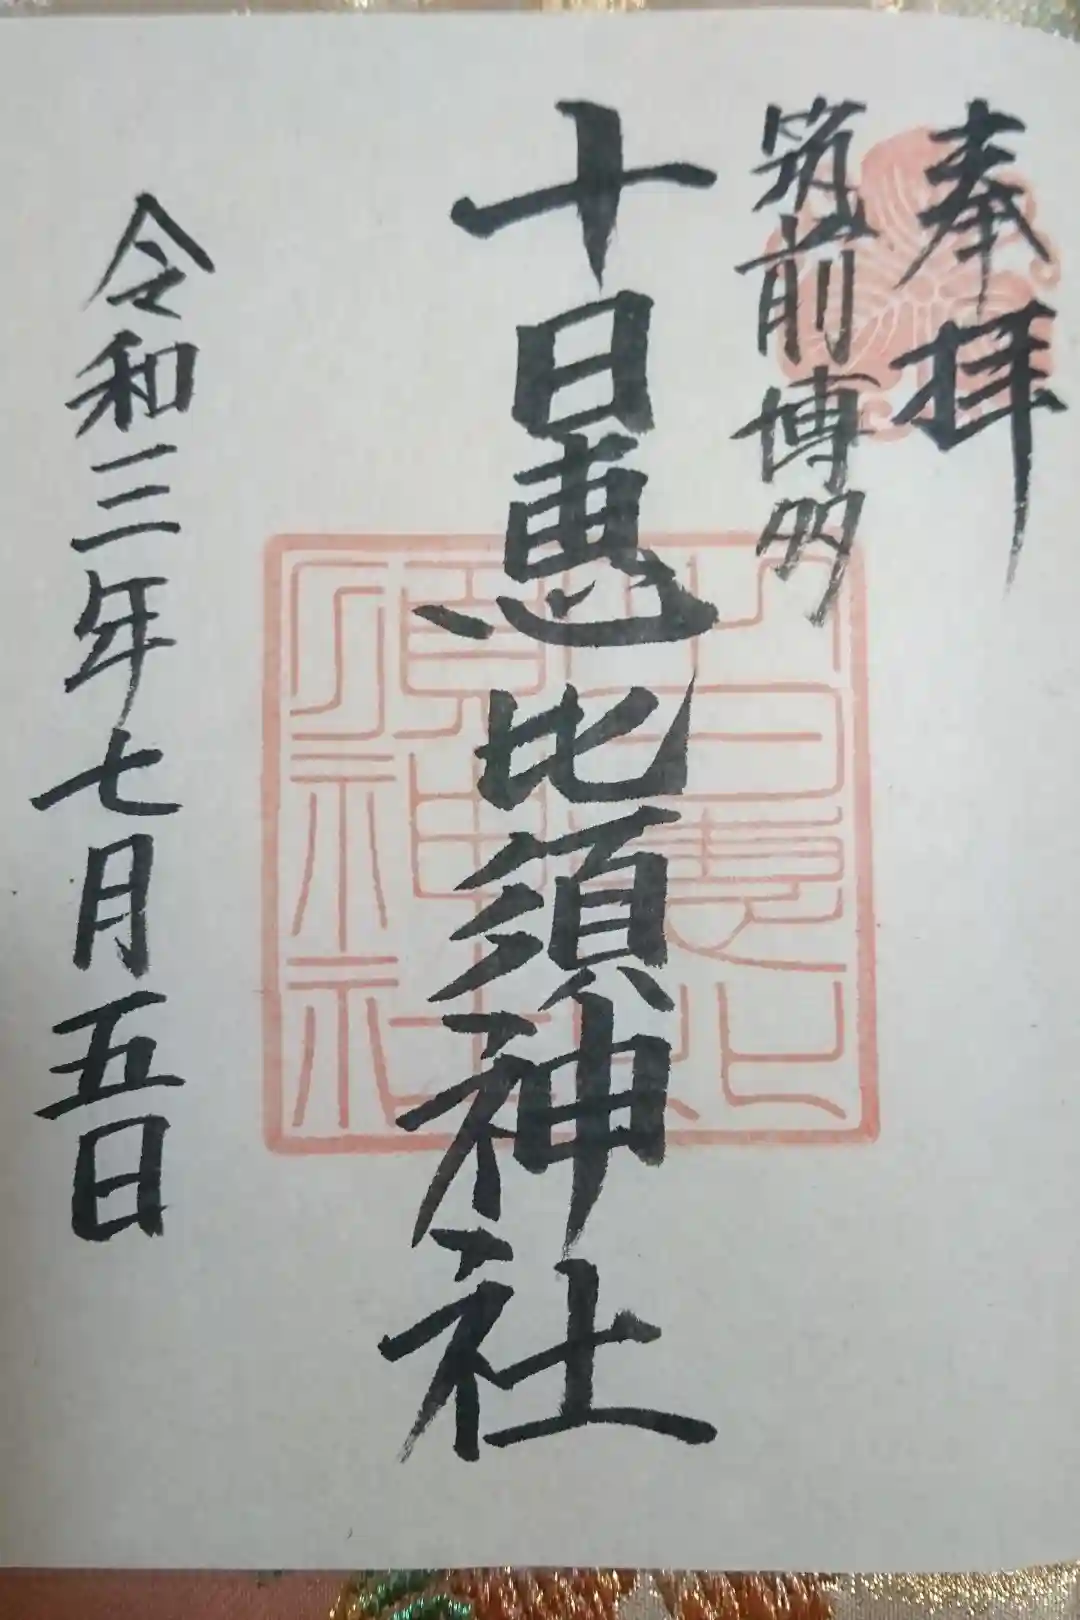 奉拝
筑前博多
十日恵比須神社
令和三年七月五日
十日恵比
須神社